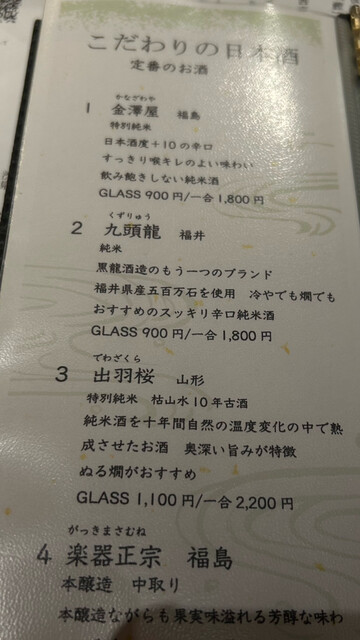 こだわりの日本酒
定番のお酒
かなざわや
1 金澤屋 福島
特別純米
日本酒度＋10の辛口
すっきり喉キレのよい味わい
飲み飽きしない純米酒
GLASS 900円/一合1,800円
くずりゅう
2 九頭龍 福井
純米
黒龍酒造のもう一つのブランド
福井県産五百万石を使用 冷やでも燗でも
おすすめのスッキリ辛口純米酒
GLASS 900円/一合1,800円
でわざくら
3 出羽桜 山形
特別純米 枯山水10年古酒
純米酒を十年間自然の温度変化の中で熟
成させたお酒 奥深い旨みが特徴
ぬる燗がおすすめ
GLASS 1,100円/一合2,200円
がっきまさむね
4 楽器正宗 福島
本醸造 中取り
本醸造ながらも果実味溢れる芳醇な味わ